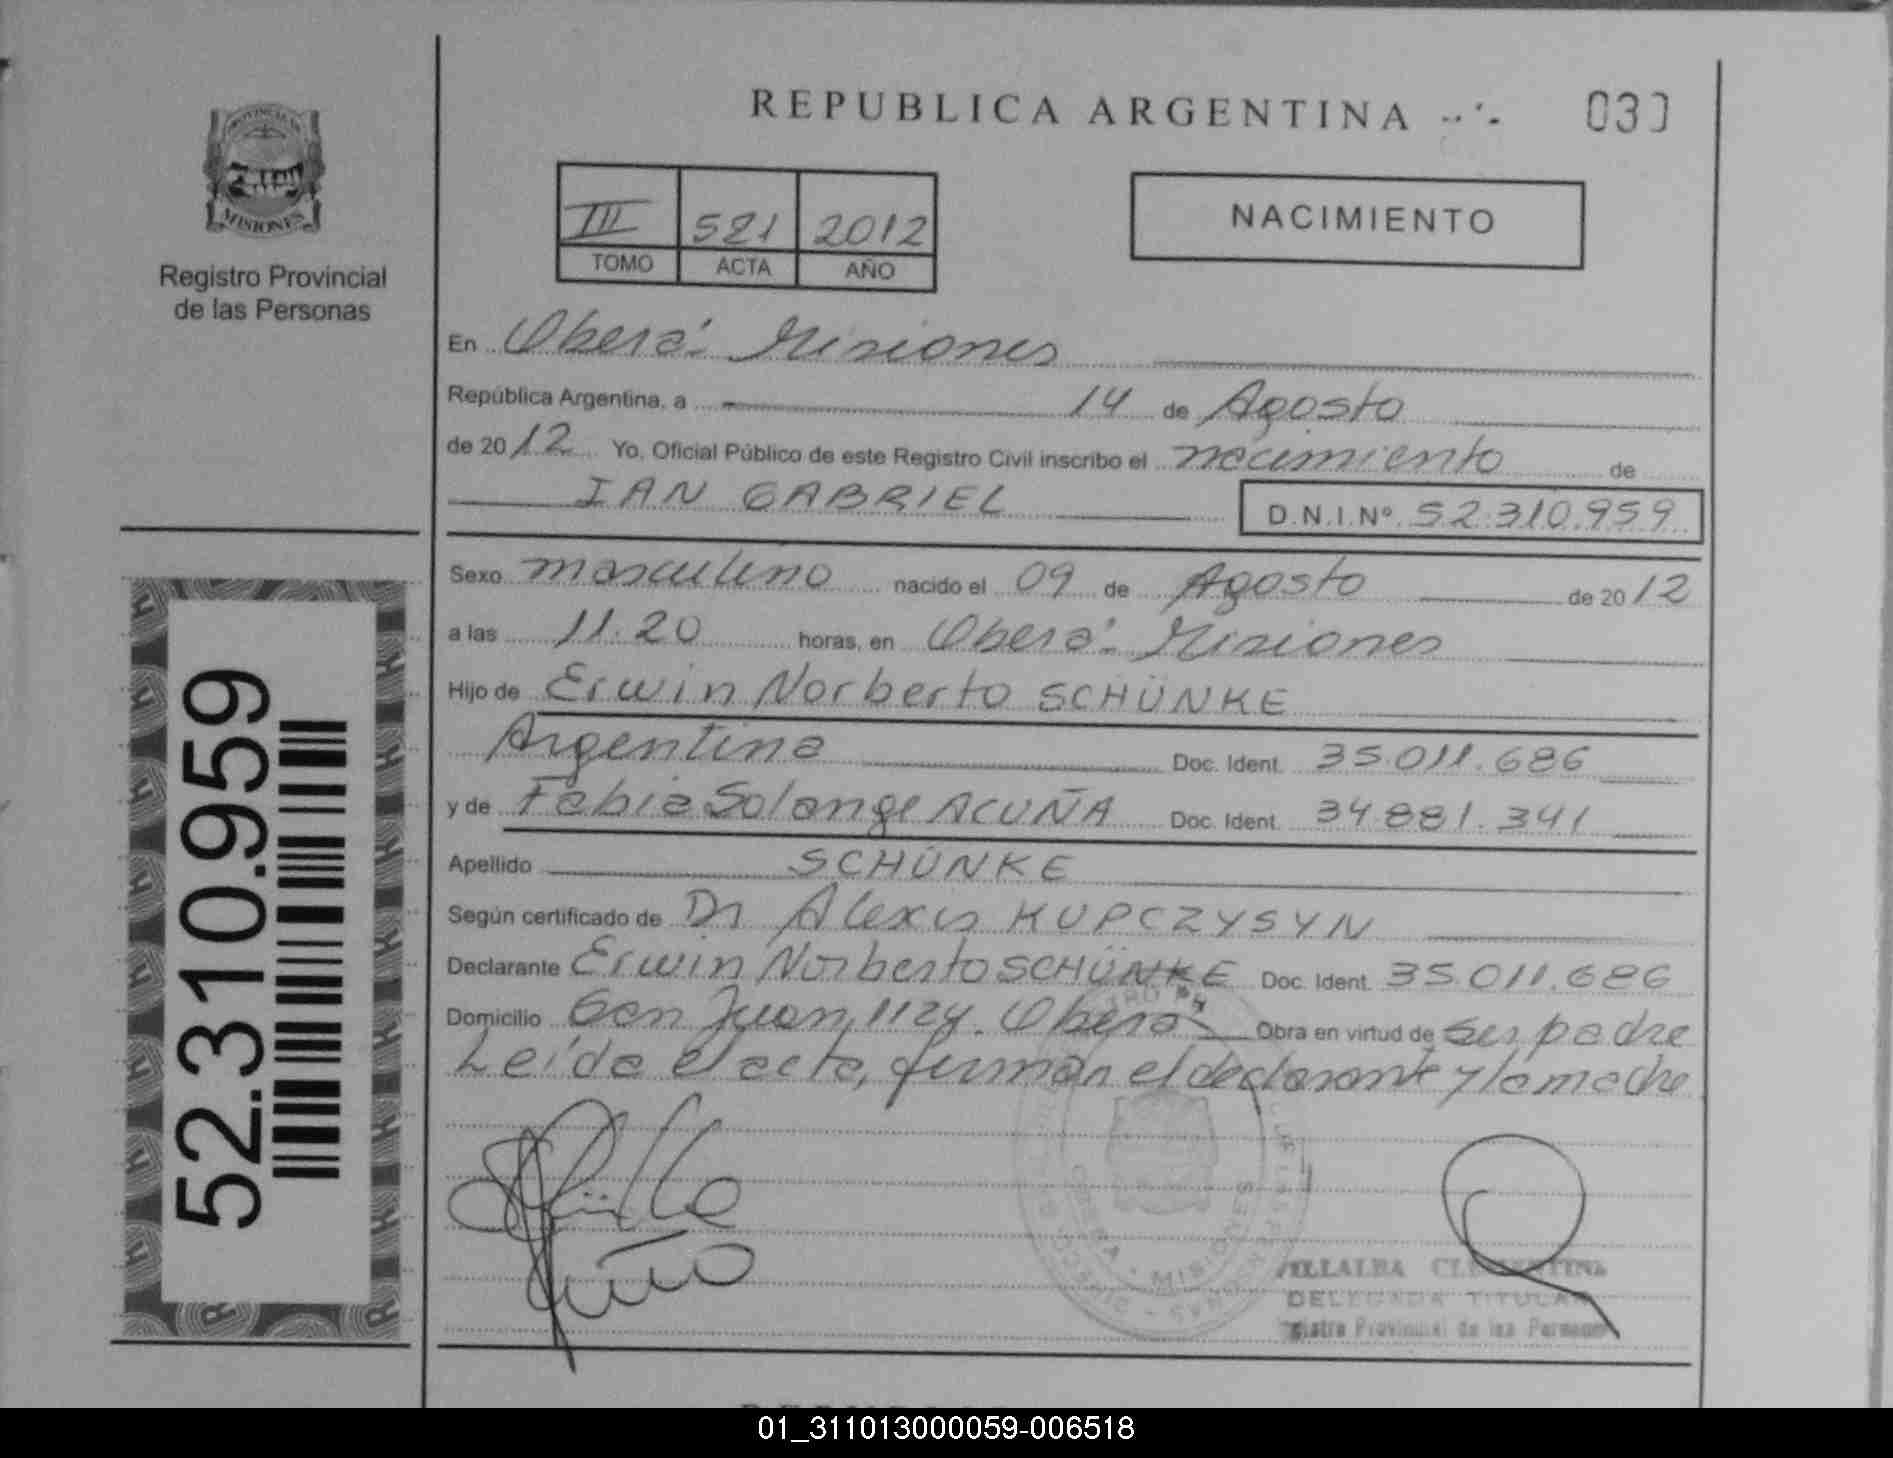 REPUBLICA ARGENTINA
MISIONES
Registro Provincial
de las Personas
III 521 2012
TOMO ACTA AÑO
NACIMIENTO
En Oberá - Misiones
República Argentina, a 14 de Agosto
de 2012 Yo, Oficial Público de este Registro Civil inscribo el nacimiento de
IAN GABRIEL D.N.I.Nº 52.310.959
Sexo masculino nacido el 09 de Agosto de 2012
a las 11.20 horas, en Oberá - Misiones
Hijo de Erwin Norberto SCHÜNKE
Argentina Doc. Ident. 35.011.686
y de Fabia Solange ACUÑA Doc. Ident. 34.881.341
Apellido SCHÜNKE
Según certificado de Dr Alexis KUPCZYSYN
Declarante Erwin Norberto SCHÜNKE Doc. Ident. 35.011.686
Domicilio San Juan 1124. Oberá Obra en virtud de ser padre
Leída el acta, firman el declarante y la madre
52.310.959
VILLALBA CLEMENTINA
DELEGADA TITULAR
Registro Provincial de las Personas
01_311013000059-006518